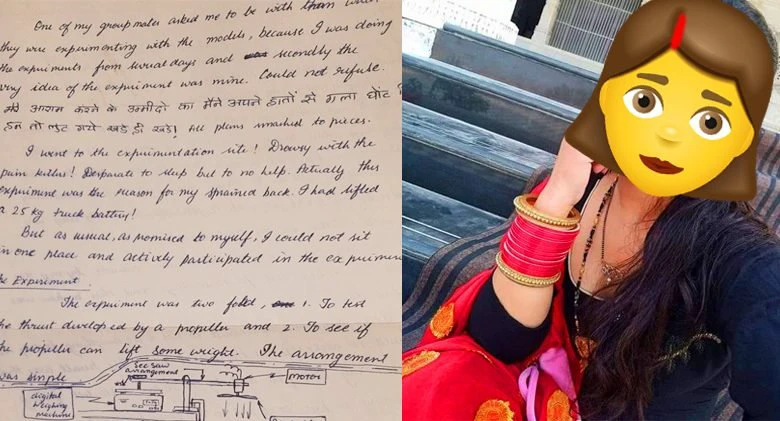 One of my groupmates asked me to be with them
they were experimenting with the models, because I was doing
the experiments from several days and secondly the
very idea of the experiment was mine. Could not refuse.
मेरे आराम करने के उम्मीदो का मैंने अपने हातों से गला घोंट
हम तो लुट गये खडे ही खडे! All plans smached to pieces.
I went to the experimentation site! Drowsy with the
pain killers! Desparate to sleep but to no help. Actually this
experiment was the reason for my sprained back. I had lifted
a 25 kg truck battery!
But as usual, as promised to myself, I could not sit
in one place and actively participated in the experiment
The Experiment
The experiment was two fold, 1. To test
the thrust developed by a propeller and 2. To see if
the propeller can lift some weight. The arrangement
was simple
See saw
arrangement
MOTOR
digital
weighing
machine